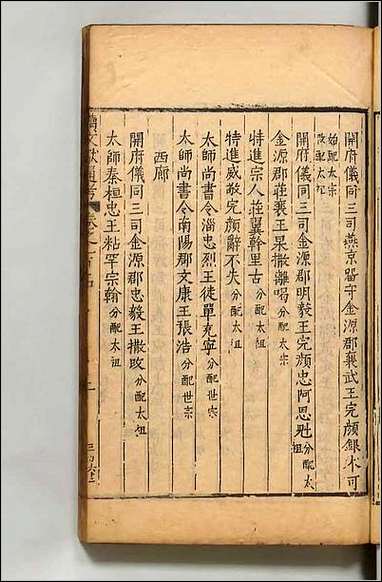 開府儀同三司燕京留守金源郡襄武王完顏銀木可
始配太宗
改配太祖
開府儀同三司金源郡明毅王完顏忠阿思魁分配太祖
金源郡莊襄王杲撒離喝分配太宗
特進宗人莊翼斡里古分配太祖
特進威敬完顏辭不失分配太祖
太師尚書令淄忠烈王徒單克寧分配世宗
太師尚書令南陽郡文康王張浩分配世宗
西廊
開府儀同三司金源郡忠毅王撒改分配太祖
太師秦桓忠王粘罕宗翰分配太祖
續文獻通考 卷之